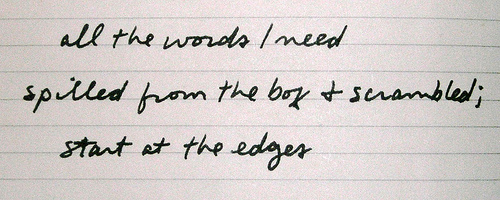 all the words I need
spilled from the box & scrambled;
start at the edges